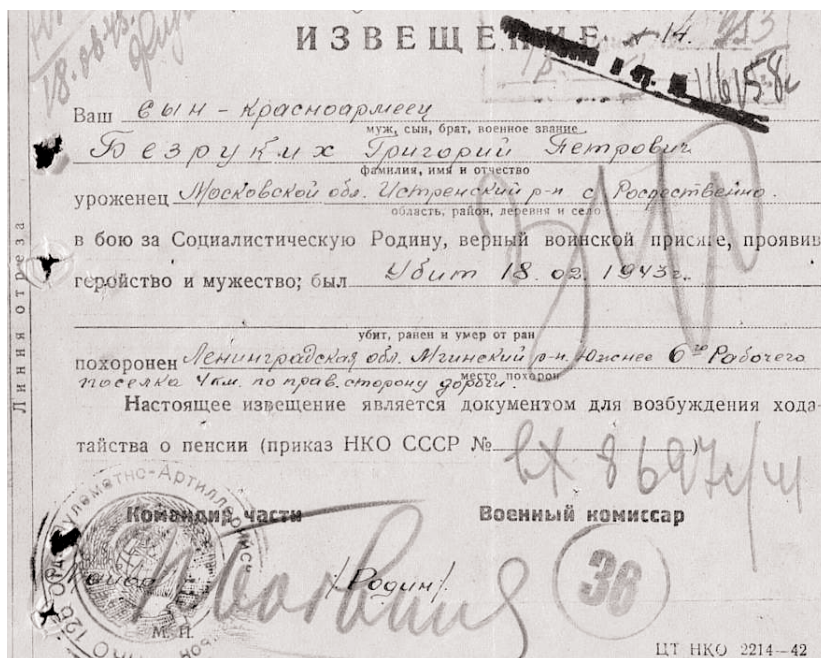 18.02.43.
ИЗВЕЩЕНИЕ
Ваш сын - красноармеец
муж, сын, брат, военное звание
Безруких Григорий Петрович
фамилия, имя и отчество
уроженец Московской обл. Истренский р-н с
область, район, деревня и село
в бою за Социалистическую Родину, верный воинской присяге, проявив
геройство и мужество; был убит 18.02.1943г.
убит, ранен и умер от ран
похоронен Ленинградская обл. Мгинский р-н. Южнее 6го Рабочего
место похорон
поселка 4км. по прав. сторону дороги.
Настоящее извещение является документом для возбуждения хода-
тайства о пенсии (приказ НКО СССР № )
вх 8697/ч
Командир части Военный комиссар
/Родин/. 36
М. П.
ЦТ НКО 2214—42
Линия отреза